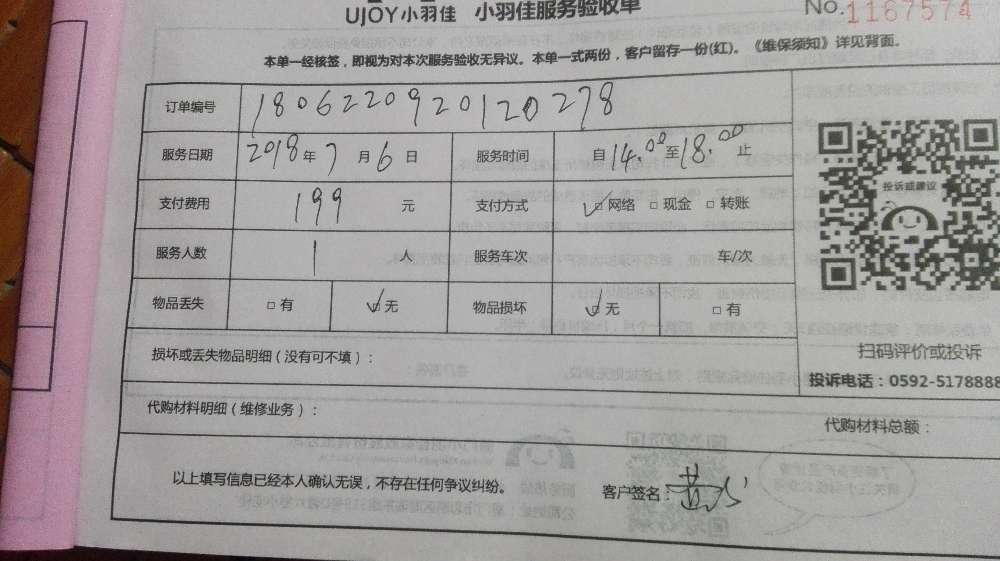 UJOY小羽佳 小羽佳服务验收单 No.1167574
本单一经核签，即视为对本次服务验收无异议。本单一式两份，客户留存一份(红)。《维保须知》详见背面。
订单编号 180622092012O278
服务日期 2018年7月6日 服务时间 自14.00至18.00止
支付费用 199 元 支付方式 ☑网络 □现金 □转账
服务人数 1 人 服务车次 车/次
物品丢失 □有 ☑无 物品损坏 ☑无 □有
损坏或丢失物品明细（没有可不填）：
代购材料明细（维修业务）： 代购材料总额：
以上填写信息已经本人确认无误，不存在任何争议纠纷。 客户签名：黄
投诉或建议
扫码评价或投诉
投诉电话：0592-5178888